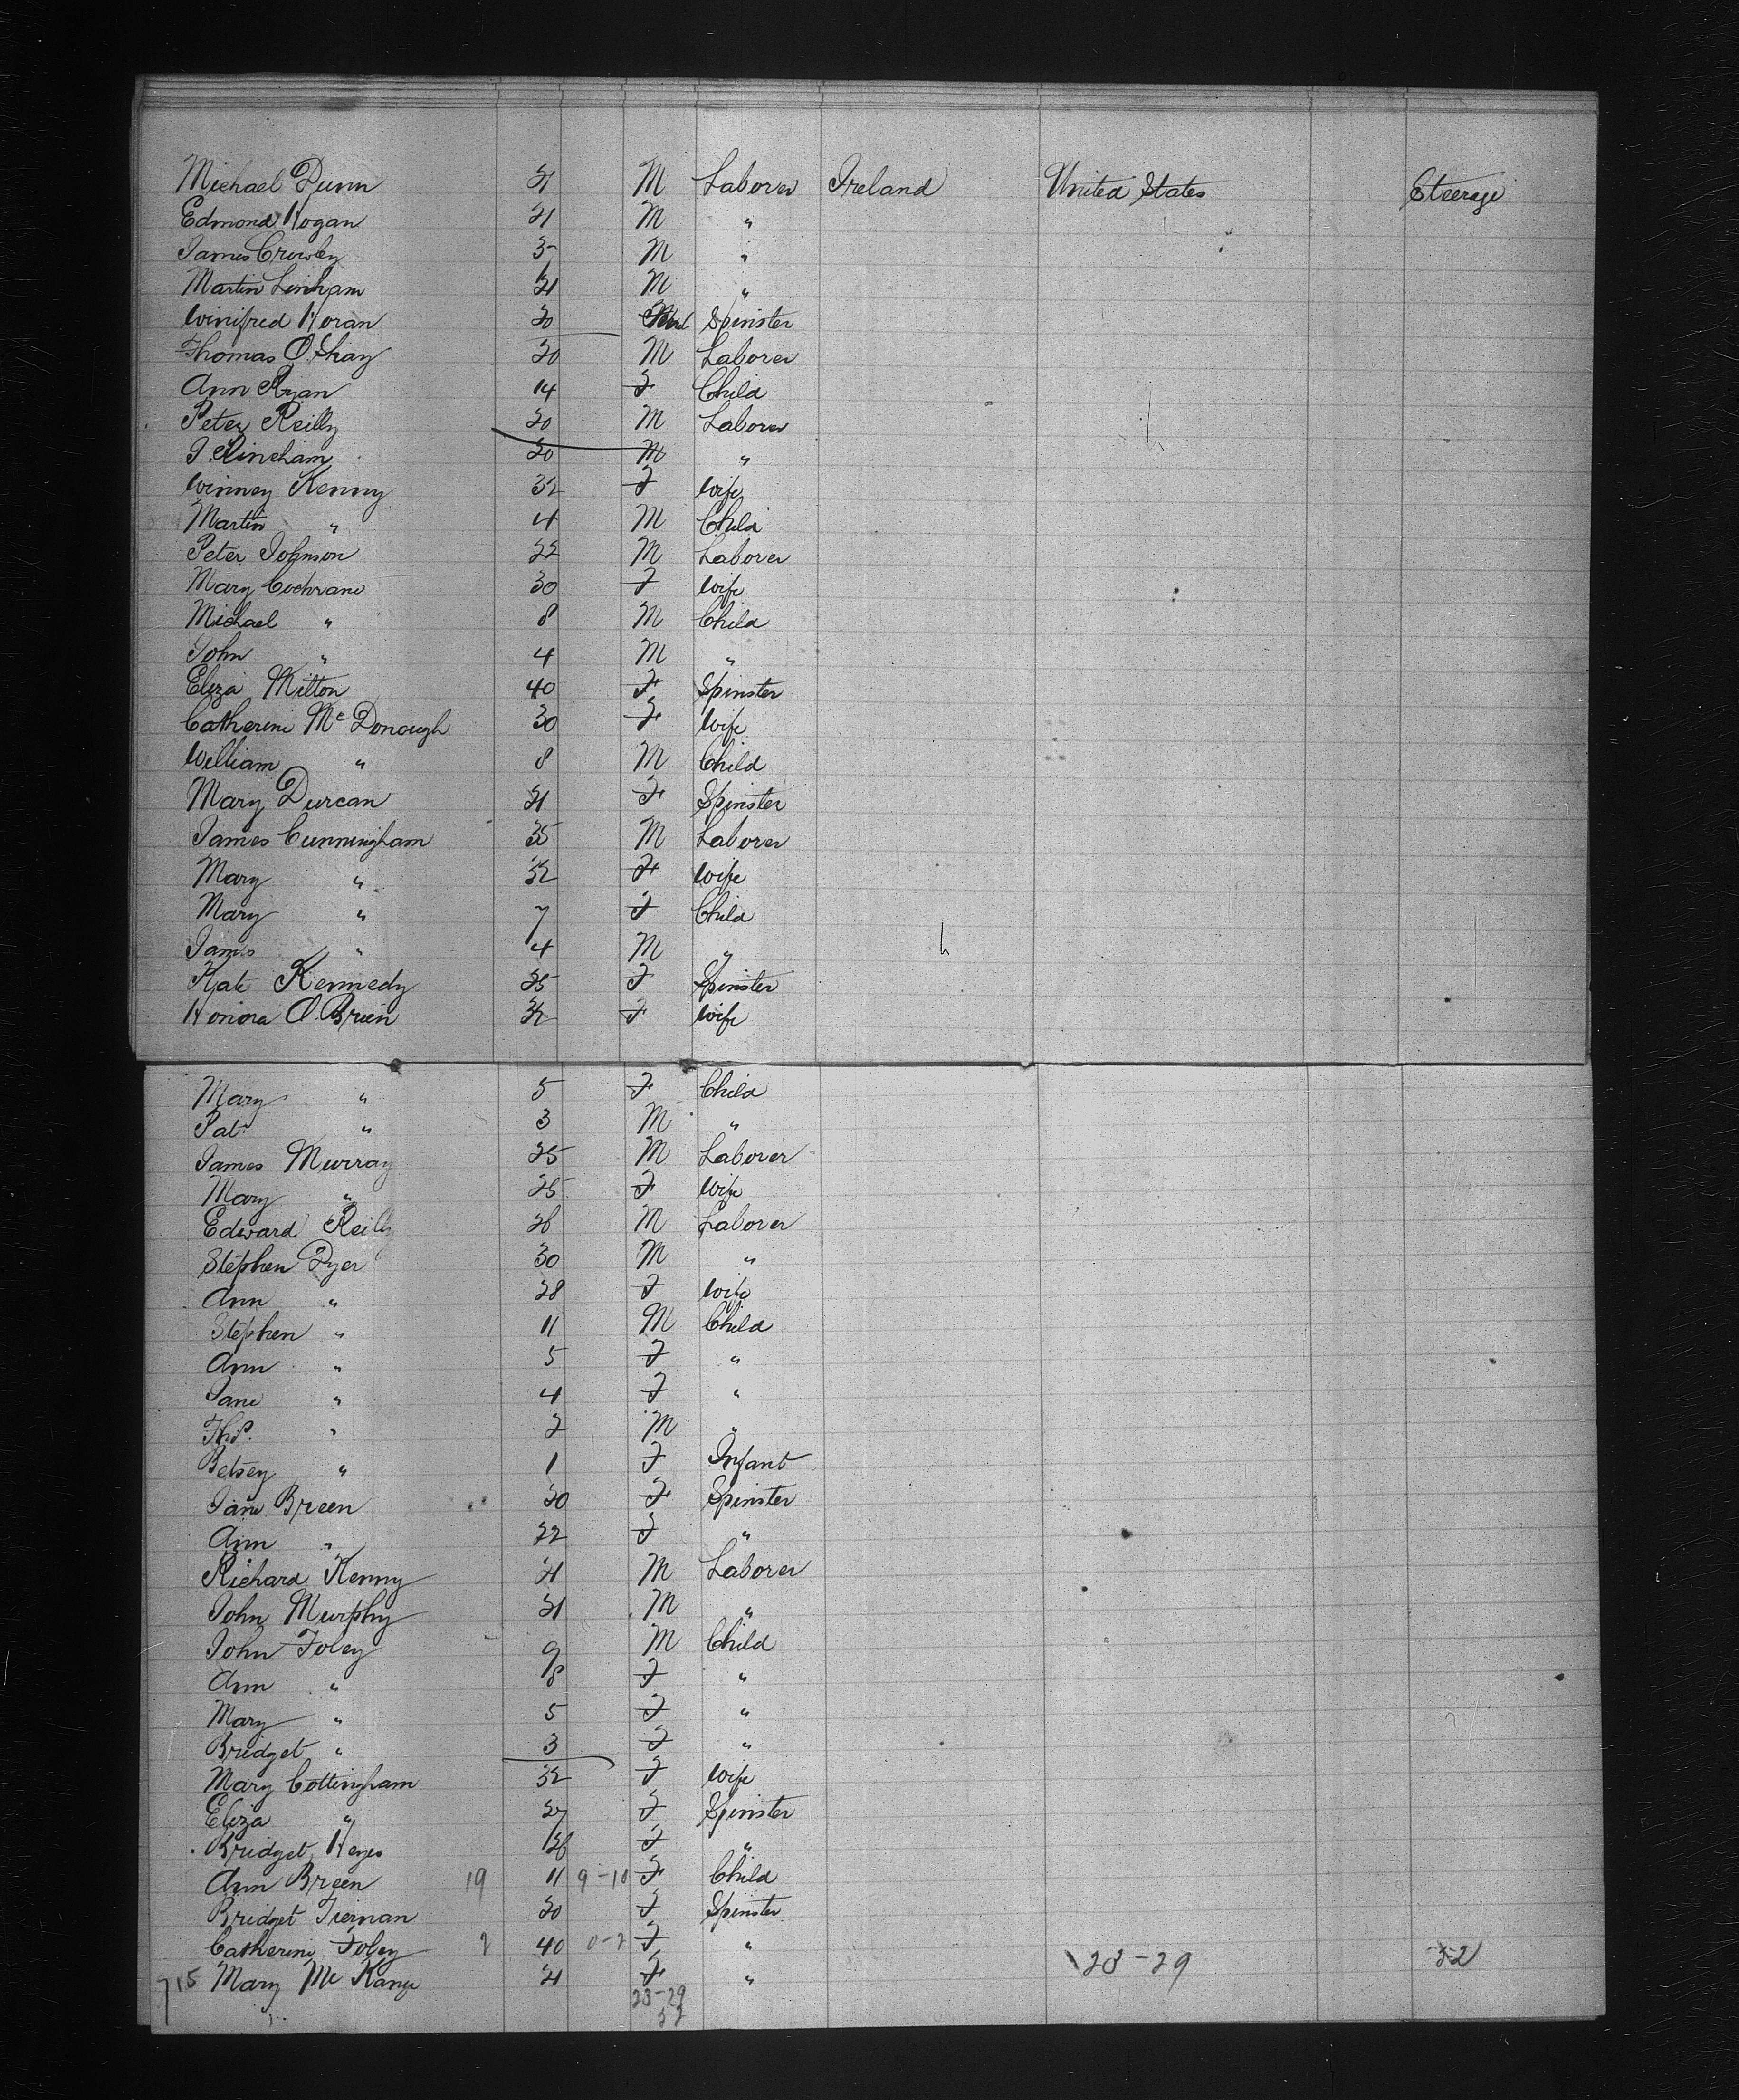 Michael Dunn 21 M Laborer Ireland United States Steerage
Edmond Hogan 21 M "
James Crowley M "
Martin Linham 21 M "
Winifred Horan 20 Spinster
Thomas O.Shay 20 M Laborer
Ann Ryan 14 F Child
Peter Reilly 20 M Laborer
20 M "
Winney Kenny 32 F Wife
Martin " 4 M Child
Peter Johnson 22 M Laborer
Mary Cochrane 30 F Wife
Michael " 8 M Child
John " 4 M "
Eliza Milton 40 F Spinster
Catherine Mc Donough 30 F Wife
William " 8 M Child
Mary Durcan 21 F Spinster
James Cunningham 35 M Laborer
Mary " 32 F Wife
Mary " 7 F Child
James " 4 M "
Kate Kennedy 25 F Spinster
Honora O.Brien 32 F Wife
Mary " 5 F Child
Pat " 3 M "
James Murray 25 M Laborer
Mary " 25 F Wife
Edward Reilly 26 M Laborer
Stephen Dyer 30 M "
Ann " 28 F Wife
Stephen " 11 M Child
Ann " 5 F "
Jane " 4 F "
Thos. " 2 M "
Betsey " 1 F Infant
Jane Breen 20 F Spinster
Ann " 22 F "
Richard Kenny 21 M Laborer
John Murphy 21 M "
John Foley 9 M Child
Ann " 8 F "
Mary " 5 F "
Bridget " 3 F "
Mary Cottingham 32 F Wife
Eliza " 27 F Spinster
Bridget Heyes 26 F "
Ann Breen 19 11 9-10 F Child
Bridget Tiernan 20 F Spinster
Catherine Foley 2 40 0-2 F "
23-29 52
715 Mary Mc Kange 21 F "
23-29
52